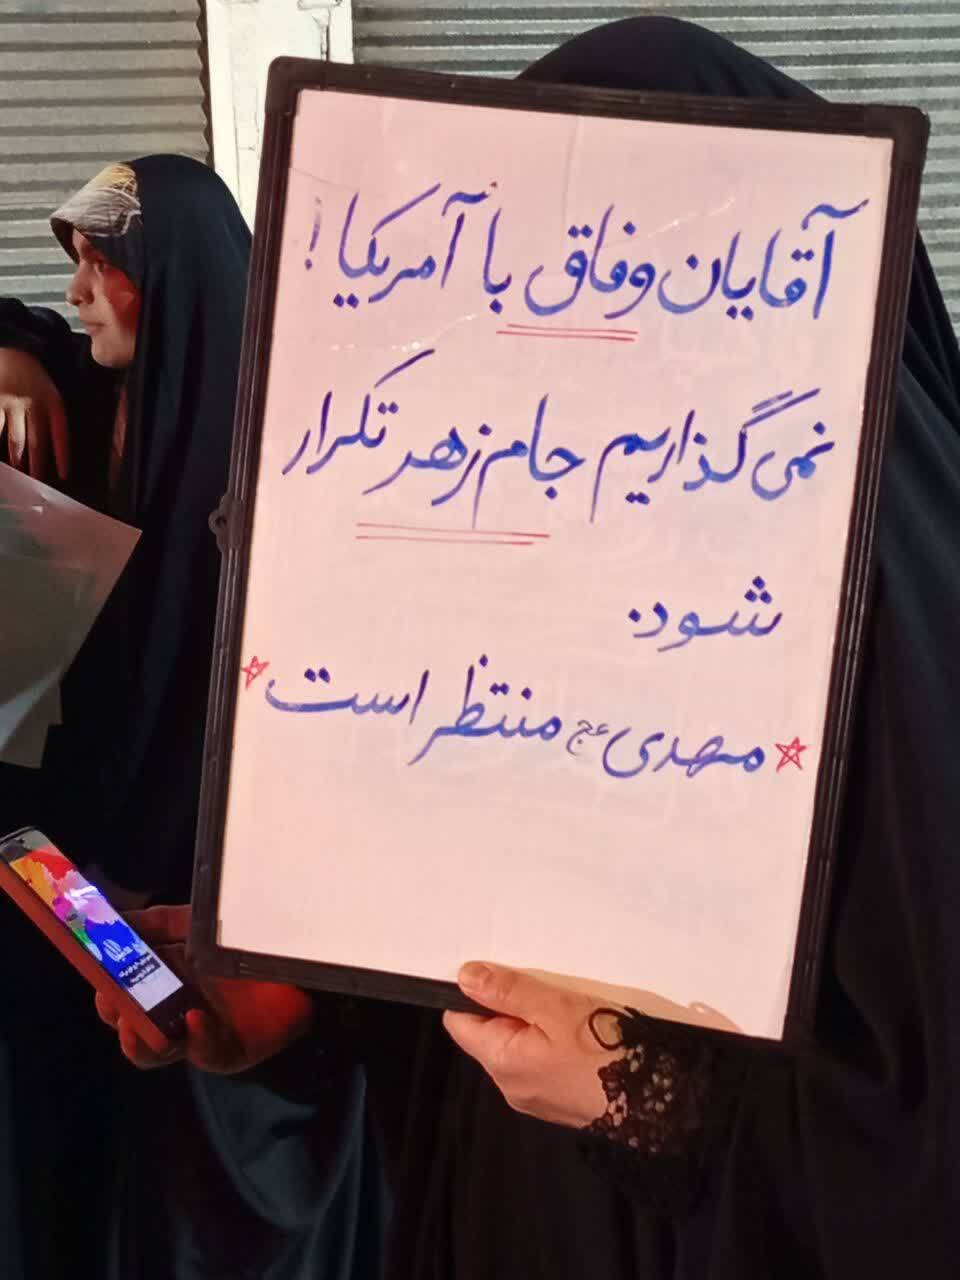 آقایان وفاق با آمریکا!
نمی گذاریم جام زهر تکرار
شود.
مهدی عج منتظر است